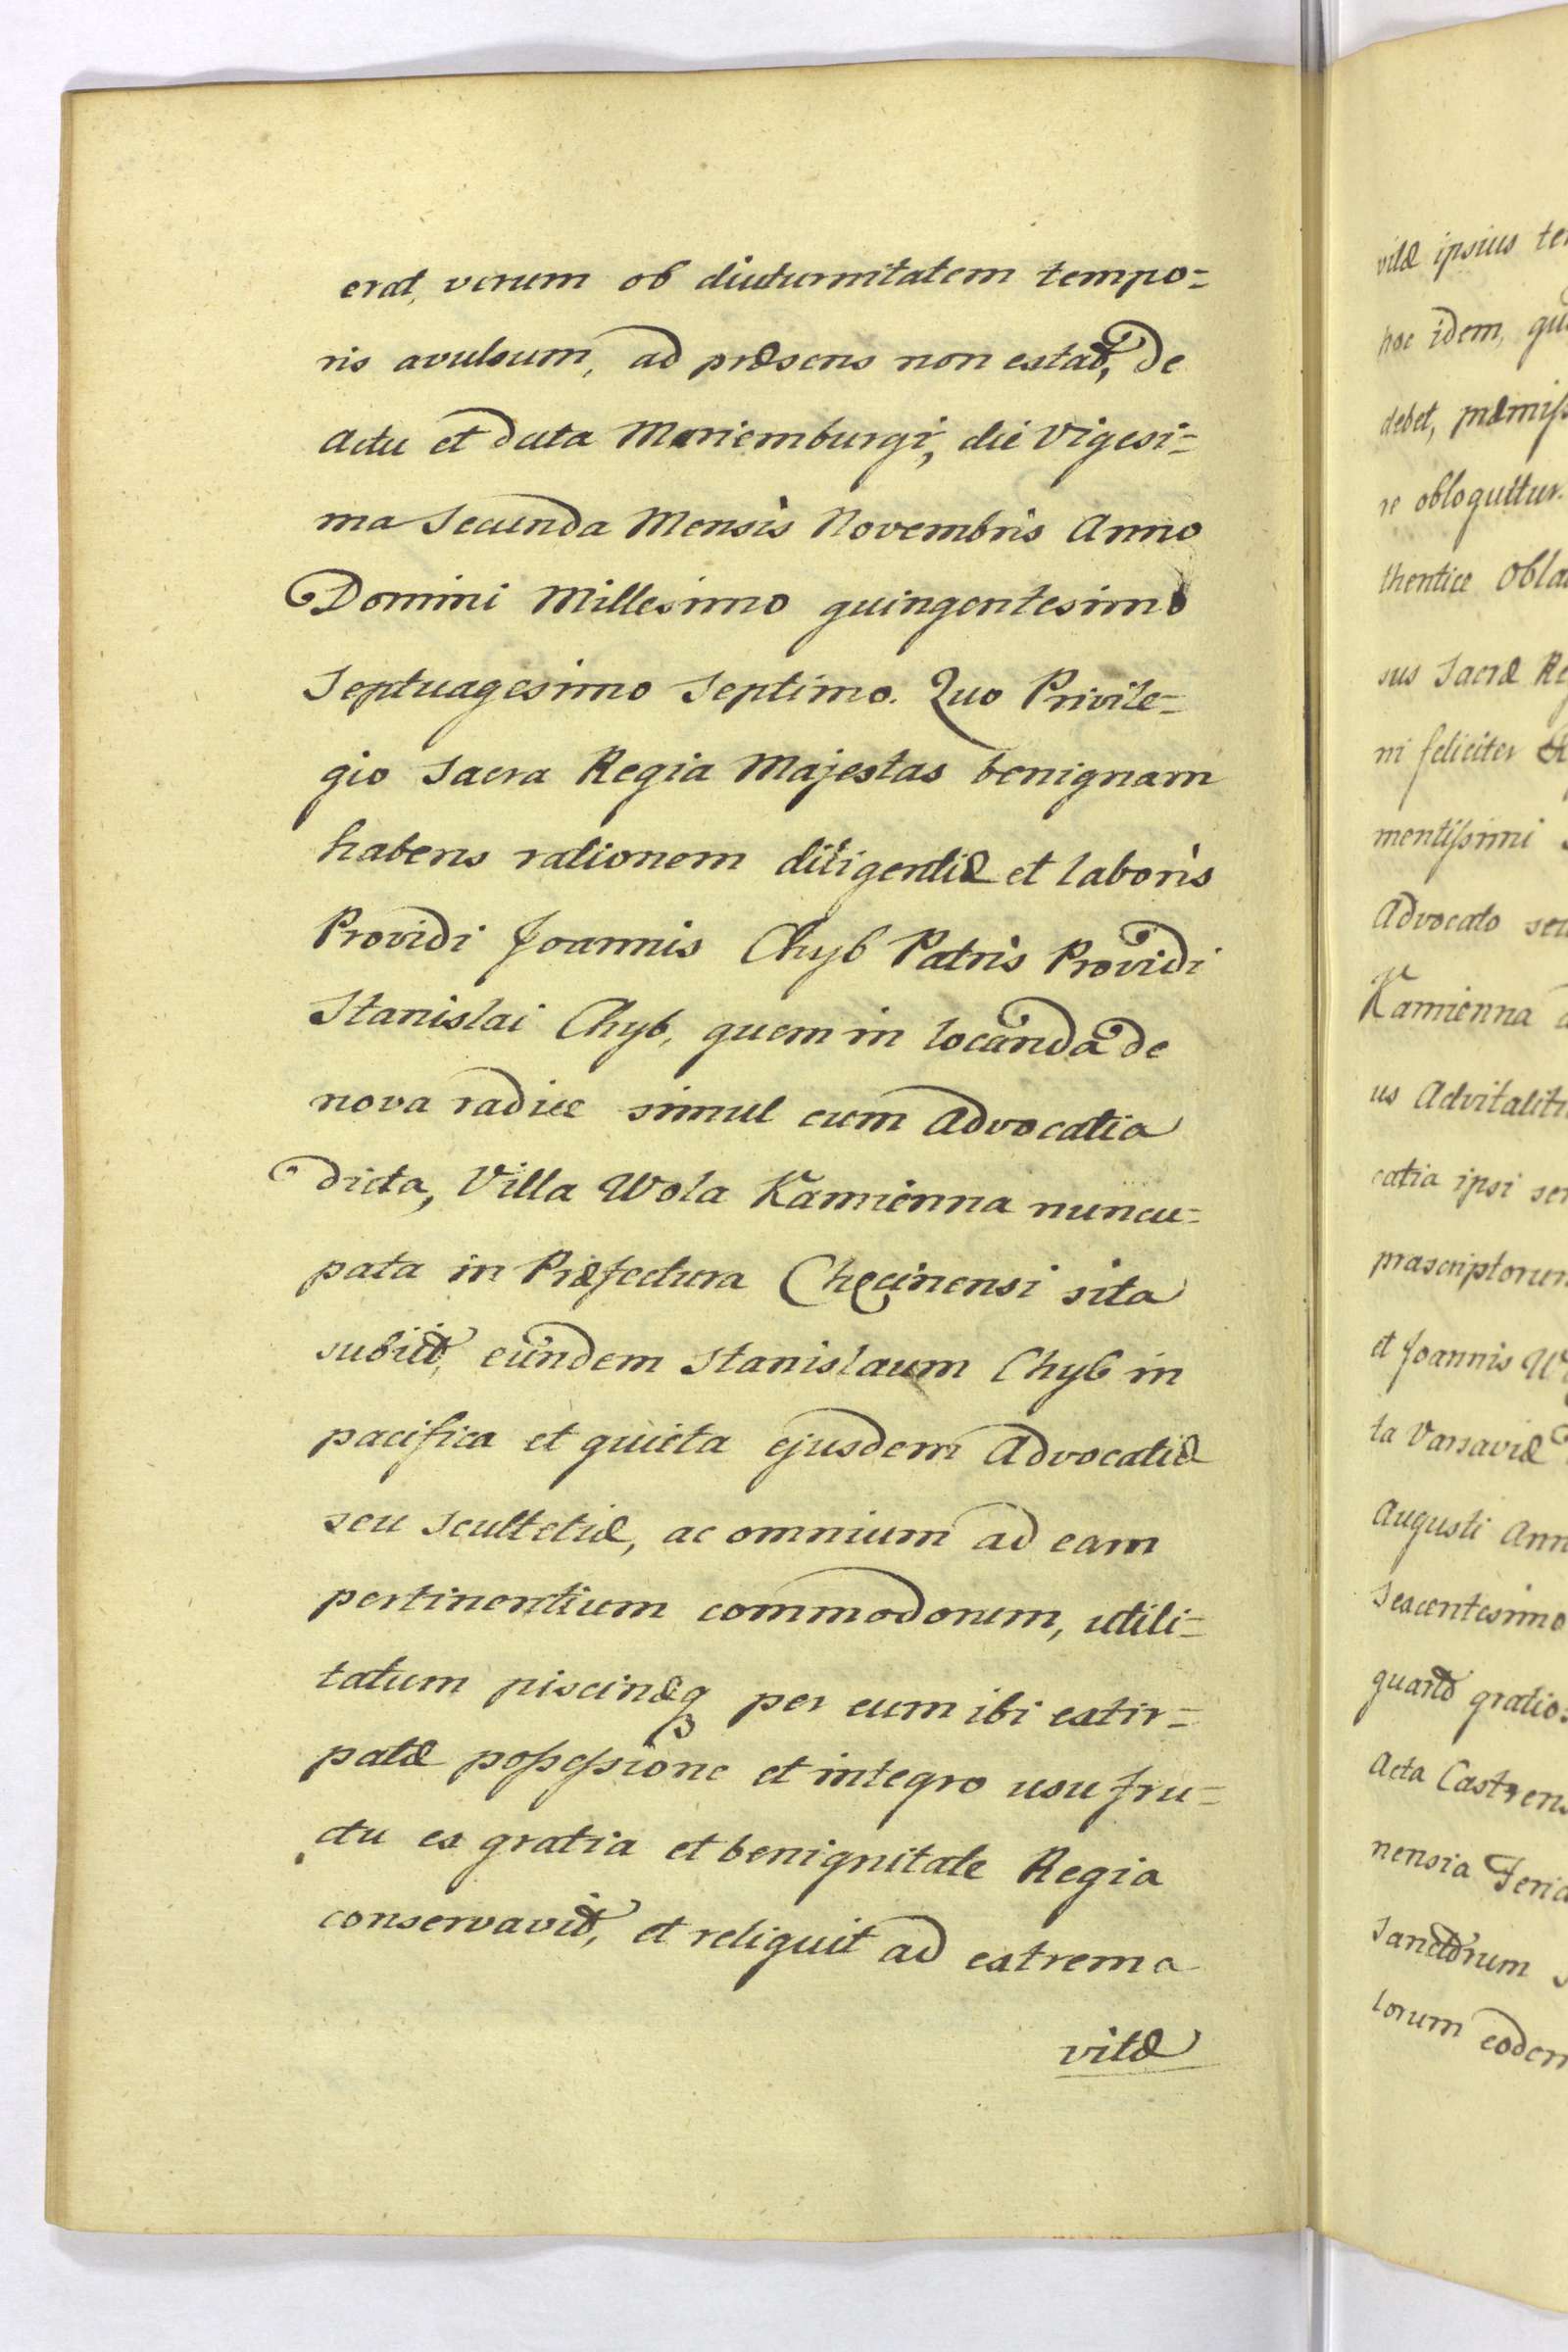 erat, verum ob diuturnitatem tempo=
ris avulsum, ad præsens non extat, de
actu et data Mariemburgi, die Vigesi=
ma Secunda Mensis Novembris Anno
Domini Millesimo quingentesimo
Septuagesimo Septimo. Quo Privile=
gio Sacra Regia Majestas benignam
habens rationem diligentiæ et laboris
Providi Joannis Chyb Patris Providi
Stanislai Chyb, quem in locanda de
nova radice simul cum Advocatia
dicta, Villa Wola Kamienna nuncu=
pata in Præfectura Chęcinensi sita
subiit, eundem Stanislaum Chyb in
pacifica et quieta ejusdem Advocatiæ
seu Scultetiæ, ac omnium ad eam
pertinentium commodorum, utili=
tatum piscinæq per eum ibi extir=
patæ possessione et integro usu fru=
ctu ex gratia et benignitate Regia
conservavit, et reliquit ad extrema
vitæ
vitæ ipsius te
hoc idem, qu
debet, præmiss
re obloquitur.
thentice Obla
sus Sacræ Re
ni feliciter
mentissimi
Advocato seu
Kamienna
us Advitalit
catia ipsi se
præscriptorum
et Joannis W
ta Varsaviæ
Augusti Ann
Sexcentesimo
quarto gratio
Acta Castrens
nensia Feria
Sanctorum
lorum eodem